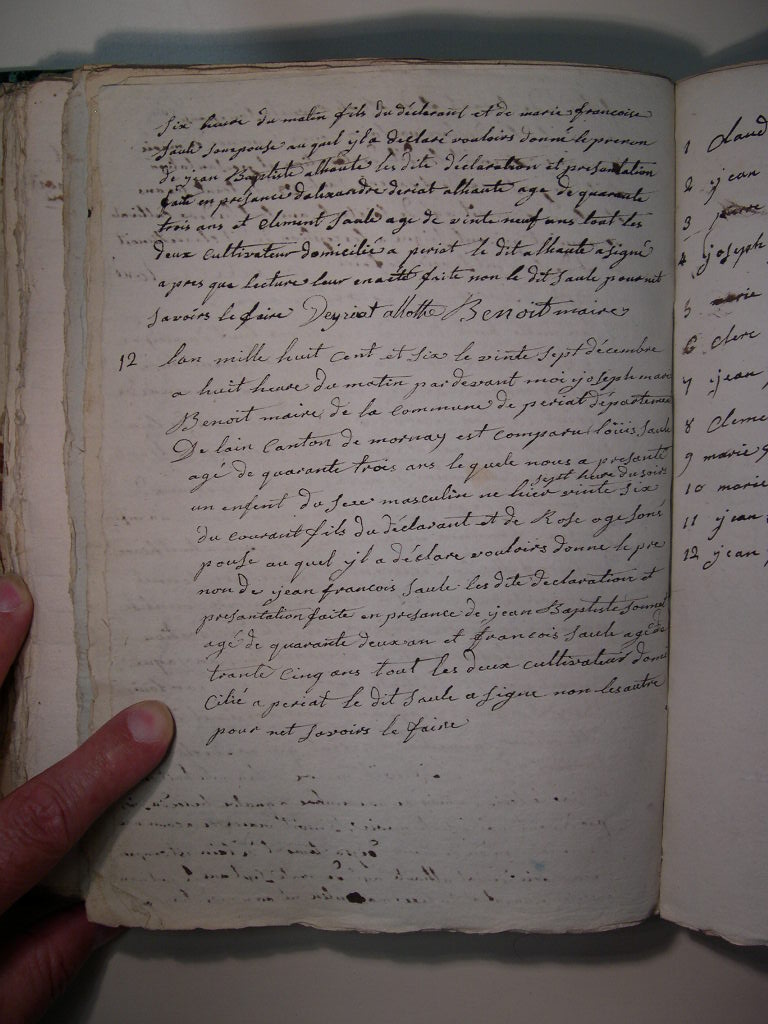 six heure du matin fils du déclarant et de marie francoise
saule son epouse au quel yl a déclaré vouloirs donné le prenon
de jean Baptiste alhaute les dite déclaration et presantation
faite en présance dalexandre deriat alhaute age de quarante
trois ans et clement saule age de vinte neuf ans tout les
deux cultivateur domicilié a periat le dit alhaute a signé
a pres que lecture leur en a été faite non le dit saule pour net
savoirs le faire Deyriat Benoit maire
12 lan mille huit cent et six le vinte sept décembre
a huit heure du matin par devant moi joseph marc
Benoit maire de la commune de periat départemen
De lain canton de mornay est comparu loüis saule
agé de quarante trois ans le quele nous a presanté
un enfent du sexe masculin ne hier vinte six
sept heure du soirs
du courant fils du déclarant et de Rose oge son é
pouse au quel yl a déclare vouloirs donne le pre
non de jean francois saule les dite declaration et
presantation faite en présance de jean Baptiste
agé de quarante deux an et francois saule agé de
trante cinq ans tout les deux cultivateur domi
cilié a periat le dit saule a signe non les autre
pour net savoirs le faire
1 claud
2 jean
3
4 joseph
5 marie
6 clerc
7 jean
8 cleme
9 marie
10 marie
11 jean
12 jean